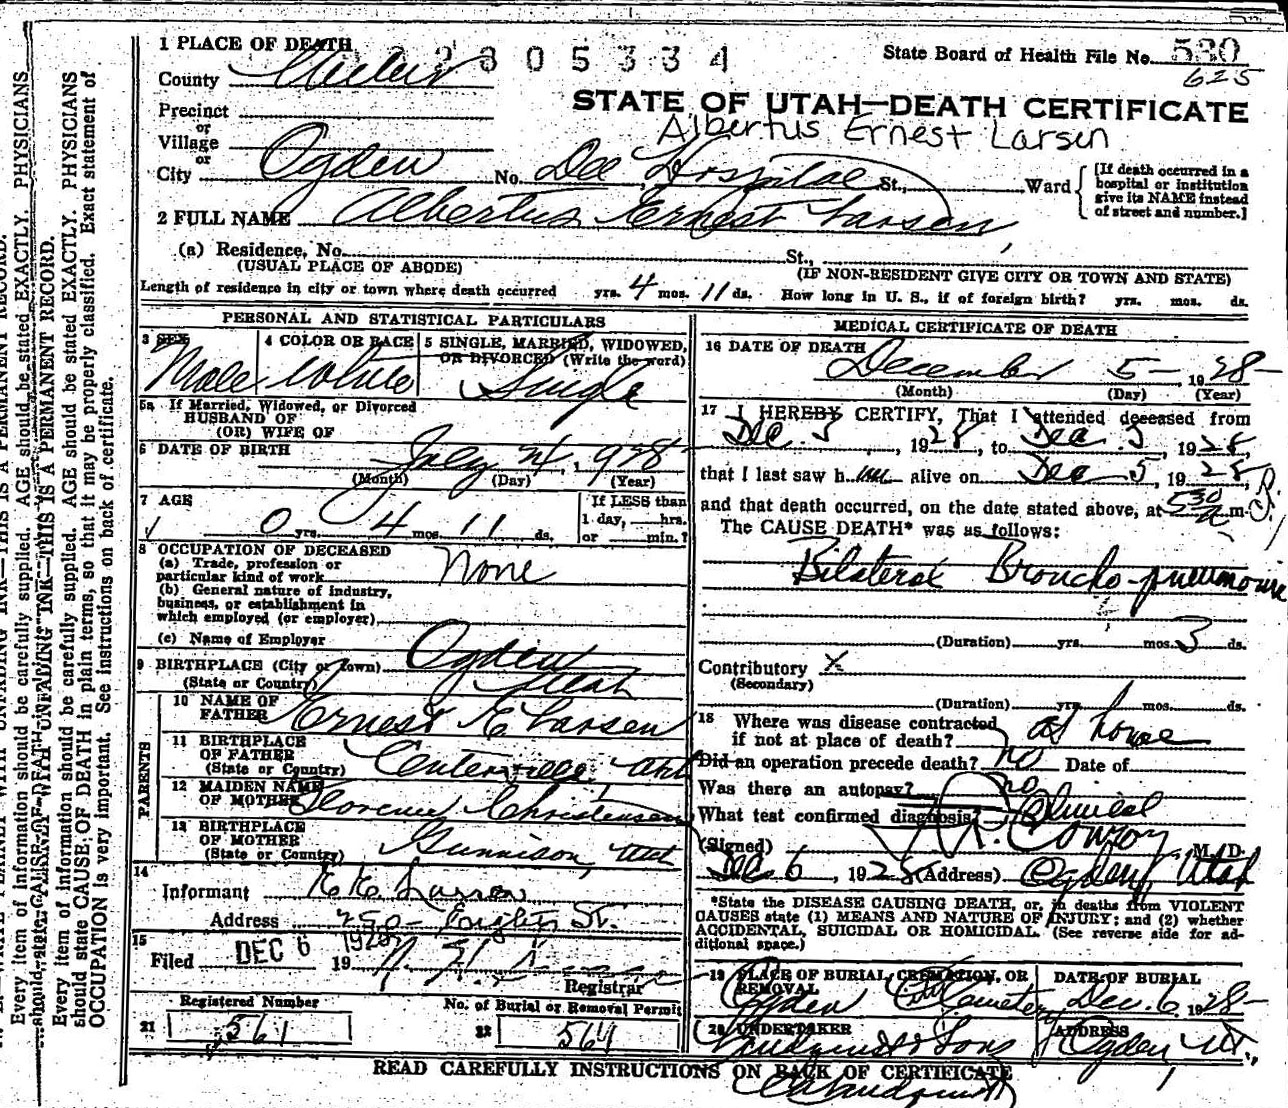 1 PLACE OF DEATH
2 8 0 5 3 3 4
State Board of Health File No. 530
625
County Weber
STATE OF UTAH—DEATH CERTIFICATE
Albertus Ernest Larsen
Precinct
or
Village
or
City Ogden No. Dee Hospital St., Ward
[If death occurred in a
hospital or institution
give its NAME instead
of street and number.]
2 FULL NAME Albertus Ernest Larsen
(a) Residence, No. St.,
(USUAL PLACE OF ABODE) (IF NON-RESIDENT GIVE CITY OR TOWN AND STATE)
Length of residence in city or town where death occurred yrs. 4 mos. 11 ds. How long in U. S., if of foreign birth? yrs. mos. ds.
PERSONAL AND STATISTICAL PARTICULARS
3 SEX 4 COLOR OR RACE 5 SINGLE, MARRIED, WIDOWED,
OR DIVORCED (Write the word)
Male White Single
5a If Married, Widowed, or Divorced
HUSBAND OF
(OR) WIFE OF
6 DATE OF BIRTH July 24, 1928
(Month) (Day) (Year)
7 AGE
If LESS than
1 day, hrs.
or min.?
0 yrs. 4 mos. 11 ds.
8 OCCUPATION OF DECEASED
(a) Trade, profession or
particular kind of work None
(b) General nature of industry,
business, or establishment in
which employed (or employer)
(c) Name of Employer
9 BIRTHPLACE (City or Town) Ogden
(State or Country) Utah
PARENTS
10 NAME OF
FATHER Ernest E Larsen
11 BIRTHPLACE
OF FATHER
(State or Country) Centerville, Utah
12 MAIDEN NAME
OF MOTHER Florence Christensen
13 BIRTHPLACE
OF MOTHER
(State or Country) Gunnison, Utah
14
Informant E E Larsen
Address St.
15
Filed DEC 6 1928 19
Registrar
Registered Number No. of Burial or Removal Permit
21 561 22 564
MEDICAL CERTIFICATE OF DEATH
16 DATE OF DEATH
December 5 - 1928-
(Month) (Day) (Year)
17 I HEREBY CERTIFY, That I attended deceased from
Dec. 5, 1928, to Dec. 5, 1928,
that I last saw him alive on Dec 5, 1928,
and that death occurred, on the date stated above, at 530 a m.
The CAUSE DEATH* was as follows:
Bilateral Broncho-pneumonia
(Duration) yrs. mos. 3 ds.
Contributory X
(Secondary)
(Duration) yrs. mos. ds.
18 Where was disease contracted
if not at place of death? at home
Did an operation precede death? no Date of
Was there an autopsy? no
What test confirmed diagnosis? Clinical
(Signed) Conroy M. D.
Dec 6, 1928 (Address) Ogden, Utah
*State the DISEASE CAUSING DEATH, or, in deaths from VIOLENT
CAUSES state (1) MEANS AND NATURE OF INJURY; and (2) whether
ACCIDENTAL, SUICIDAL OR HOMICIDAL. (See reverse side for ad-
ditional space.)
19 PLACE OF BURIAL, CREMATION, OR
REMOVAL
DATE OF BURIAL
Ogden City Cemetery Dec. 6, 1928-
20 UNDERTAKER ADDRESS
& Sons Ogden, Ut.,
READ CAREFULLY INSTRUCTIONS ON BACK OF CERTIFICATE
Every item of information should be carefully supplied. AGE should be stated EXACTLY. PHYSICIANS
THIS IS A PERMANENT RECORD.
Every item of information should be carefully supplied. AGE should be stated EXACTLY. PHYSICIANS
should state CAUSE OF DEATH in plain terms, so that it may be properly classified. Exact statement of
OCCUPATION is very important. See instructions on back of certificate.